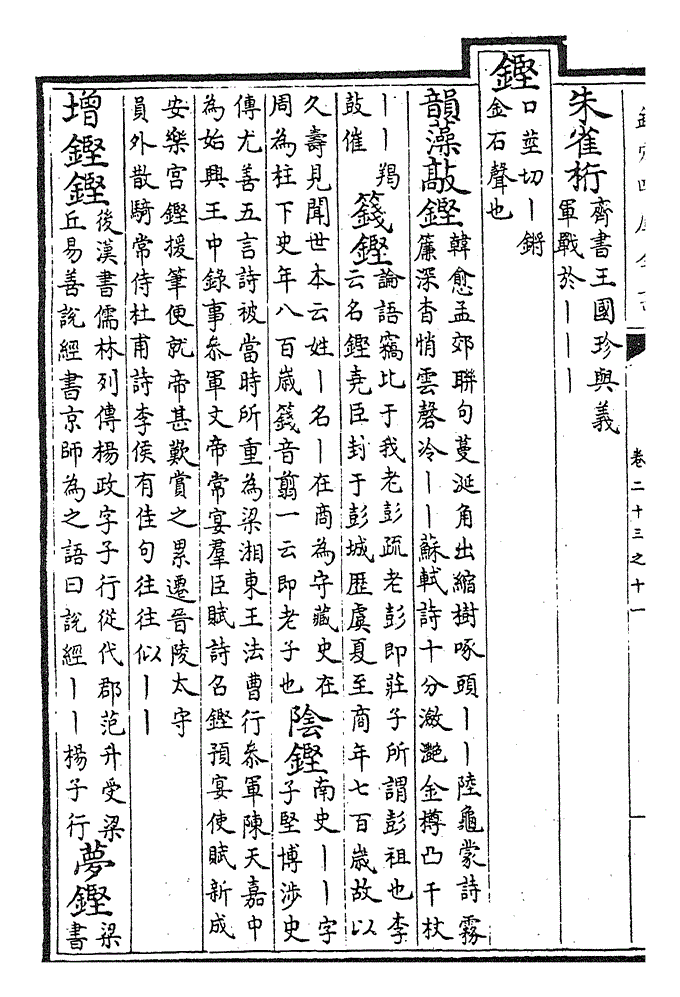 卷二十三之十一
朱雀桁
齊書王國珍與義
軍戰於丨丨丨
鏗
口莖切丨鏘
金石聲也
韻藻敲鏗
韓愈孟郊聯句蔓涎角出縮樹啄頭丨丨陸龜蒙詩霧
簾深杳悄雲磬冷丨丨蘇軾詩十分瀲灧金樽凸千杖
丨丨羯
鼓催
籛鏗
論語竊比于我老彭疏老彭即莊子所謂彭祖也李
云名鏗堯臣封于彭城歷虞夏至商年七百歲故以
久壽見聞世本云姓丨名丨在商為守藏史在
周為柱下史年八百歲籛音翦一云即老子也
陰鏗
南史丨丨字
子堅博涉史
傳尤善五言詩被當時所重為梁湘東王法曹行叅軍陳天嘉中
為始興王中錄事叅軍文帝常宴羣臣賦詩召鏗預宴使賦新成
安樂宮鏗援筆便就帝甚歎賞之累遷晉陵太守
員外散騎常侍杜甫詩李侯有佳句往往似丨丨
增鏗鏗
後漢書儒林列傳楊政字子行從代郡范升受梁
丘易善說經書京師為之語曰說經丨丨楊子行
夢鏗
梁
書